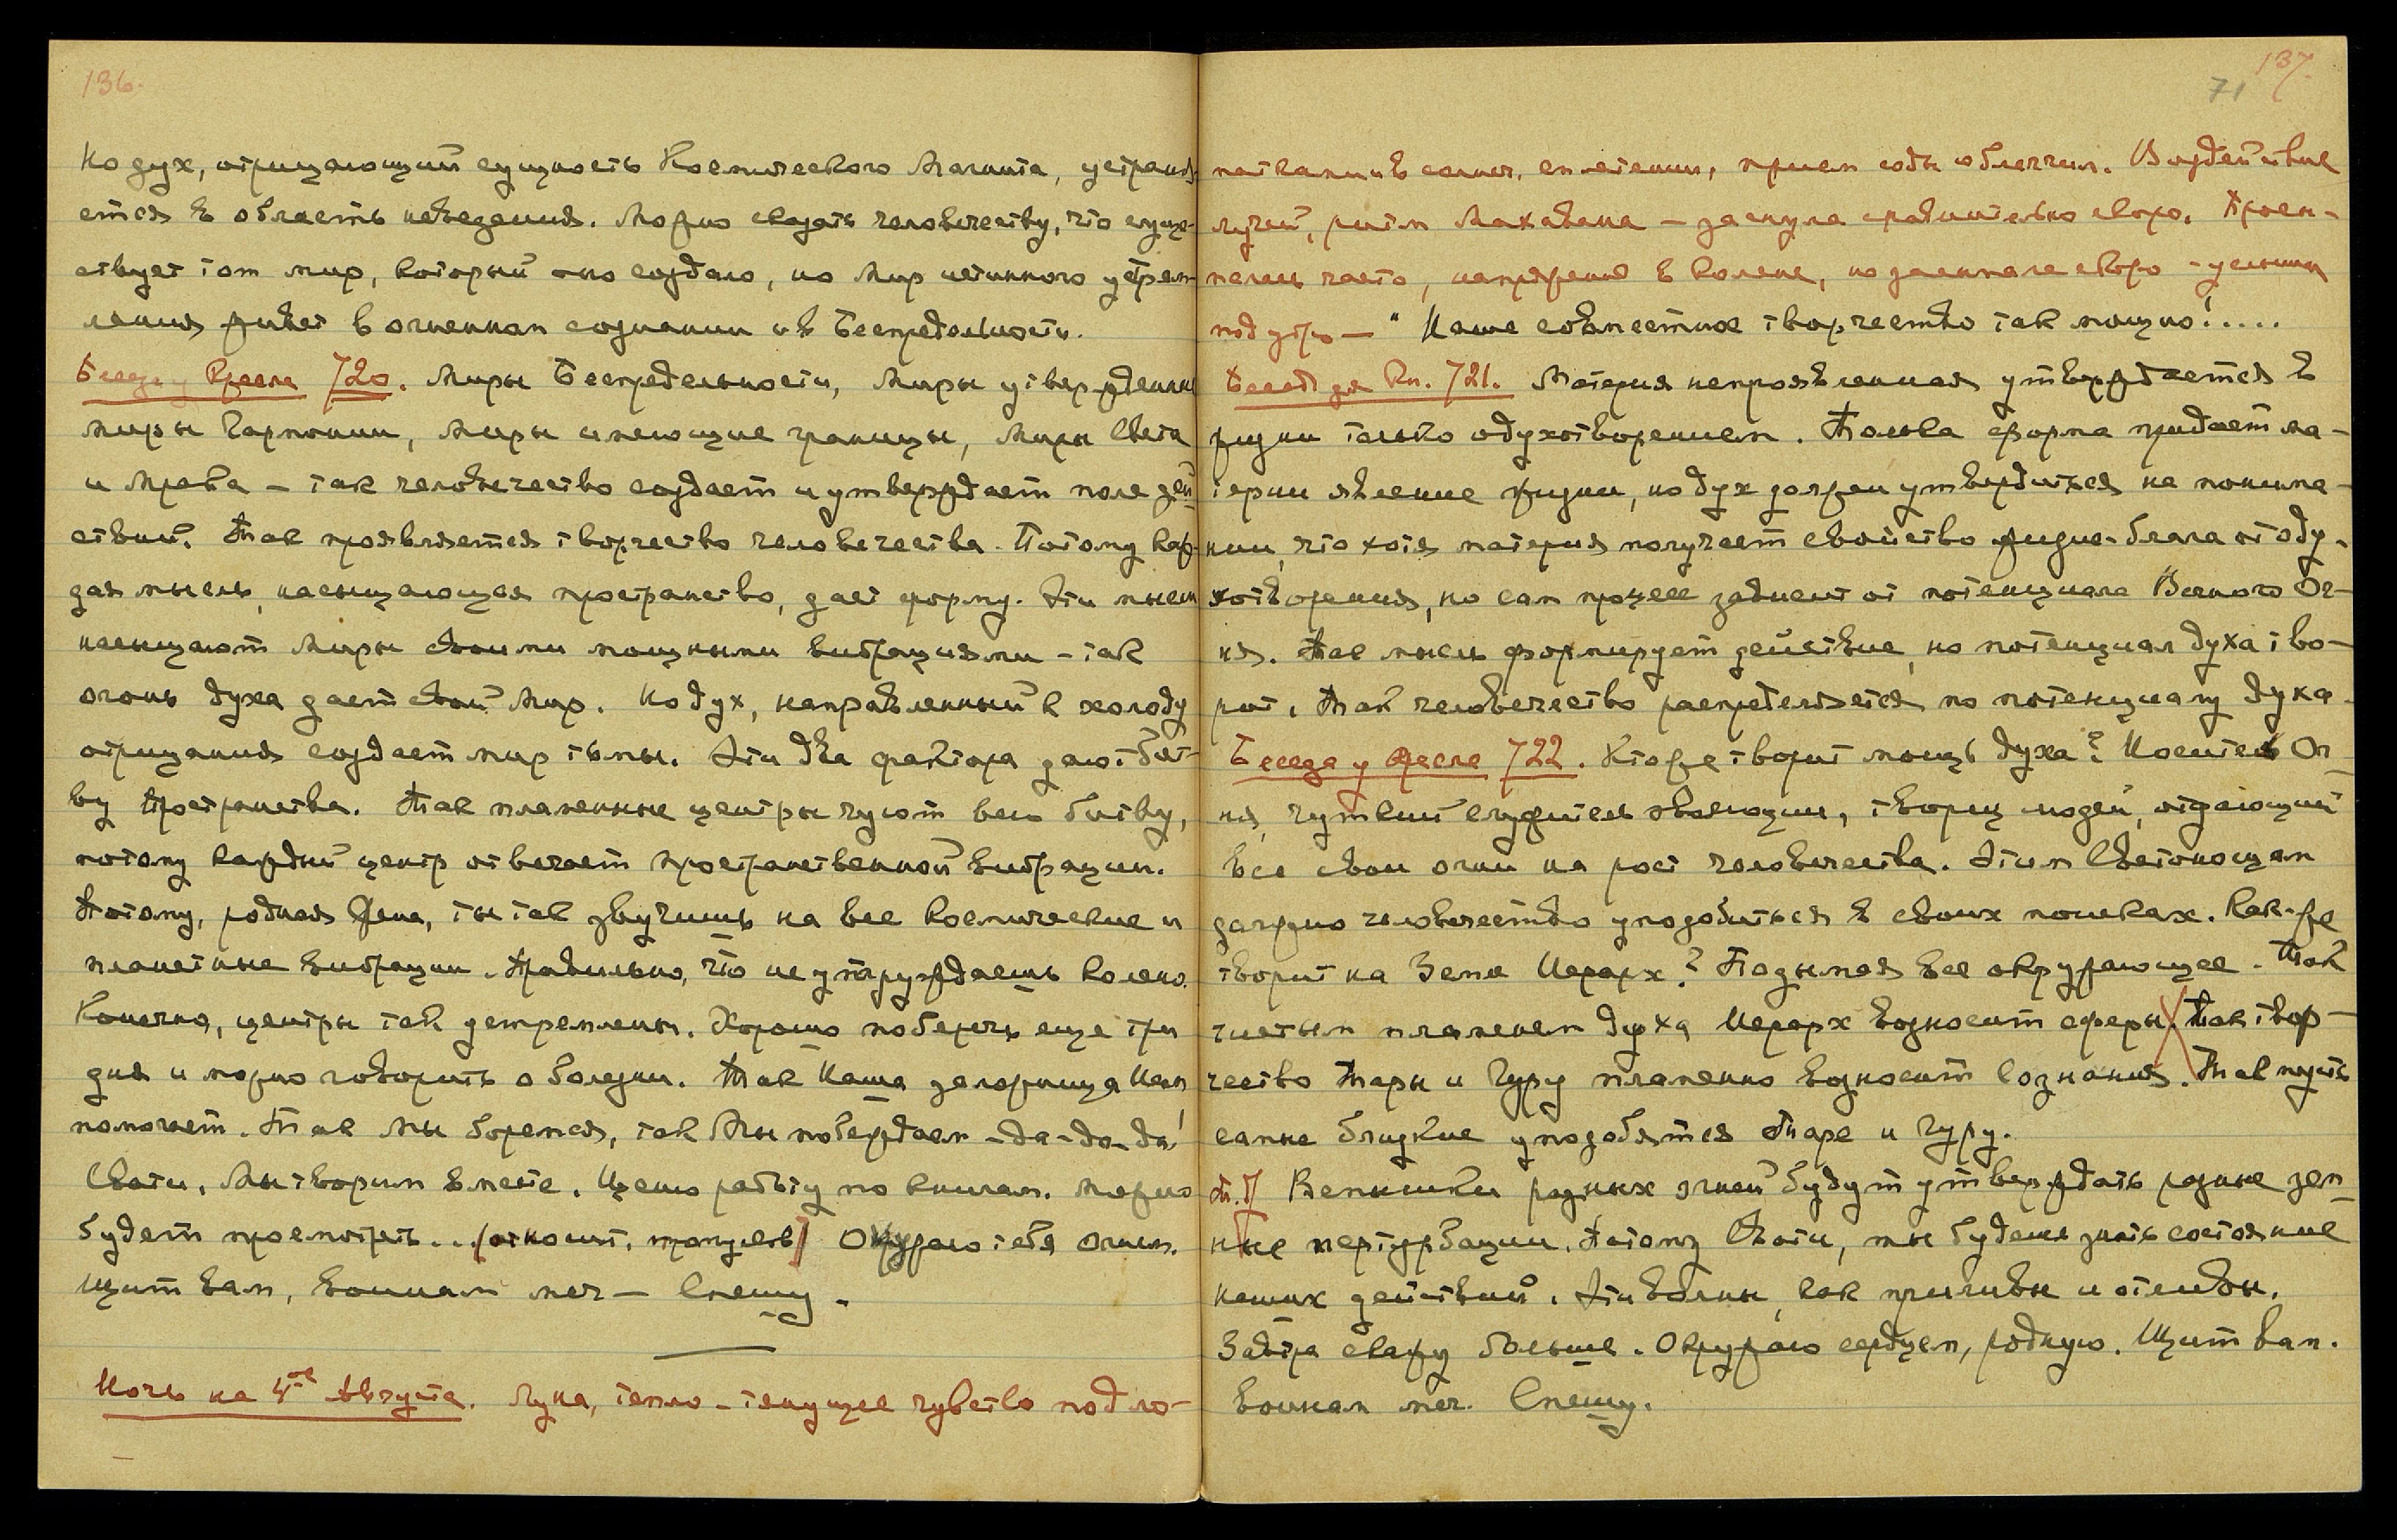 136.
Но дух, отрицающий сущность Космического Магнита, устраня-
ется в область неведения. Можно сказать человечеству, что суще-
ствует тот мир, который оно создало, но Мир истинного устрем-
ления живет в огненном сознании и в Беспредельности.
Беседа у Кресла 720. Миры Беспредельности, Миры утвержденные
Миры Гармонии, Миры имеющие границы, Миры Света
и Мрака – так человечество создает и утверждает поле дей-
ствий. Так проявляется творчество человечества. Потому каж-
дая мысль, насыщающая пространство, дает форму. Эти мысли
насыщают Миры своими мощными вибрациями – так
огонь духа дает свой Мир. Но дух, направленный к холоду
отрицания создает мир тьмы. Эти два фактора дают Бит-
ву Пространства. Так пламенные центры чуют всю битву,
потому каждый центр отвечает пространственной вибрации.
Потому, родная, ты так звучишь на все космические и
планетные вибрации. Правильно, что не утруждаешь колено.
Конечно, центры так устремлены. Хорошо поберечь еще три
дня и можно говорить о болезни. Так Наша
поможет. Так Мы боремся, так Мы побеждаем – да-да-да!
Свати, Мы творим вместе. Ценю работу по книгам. Можно
будет просмотреть... (относит. пропусков) Окружаю тебя Огнем.
Щит вам, воинам меч – Спешу.
Ночь на 4ое Августа. Луна, тепло – тянущее чувство под ло-
137.
71
патками и в солнеч. сплетении, прием соды облегчил. Воздействие
лучей, ритм Махавана – заснула сравнительно скоро. Просы-
палась часто, напряжение в колене, но засыпала скоро – услыш.
под утро – "Наше совместное творчество так мощно!.....
Беседа у Кр. 721. Материя непроявленная утверждается в
жизни только одухотворением. Только форма придает ма-
терии явление жизни, но дух должен утвердиться на понима-
нии, что хотя материя получает свойство жизне-блага от оду-
хотворения, но сам процесс зависит от потенциала Вечного Ог-
ня. Так мысль формирует действие, но потенциал духа тво-
рит. Так человечество распределяется по потенциалу духа.
Беседа у Кресла 722. Кто же творит мощь духа? Носитель Ог-
ня, чуткий служитель эволюции, творец людей, отдающий
все свои огни на рост человечества. Этим Светоносцам
должно человечество уподобиться в своих поисках. Как-же
творит на Земле Иерарх? Подымая все окружающее. Так
чистым пламенем духа Иерарх возносит сферы. Так твор-
чество Тары и Гуру пламенно возносит сознания. Так пусть
самые близкие уподобятся Таре и Гуру.
Вспышки разных огней будут утверждать разные зем-
ные пертурбации. Потому Свати, ты будешь знать состояние
наших действий. Эти волны, как приливы и отливы.
Завтра скажу больше. Окружаю сердцем, родную. Щит вам.
Воинам меч. Спешу.